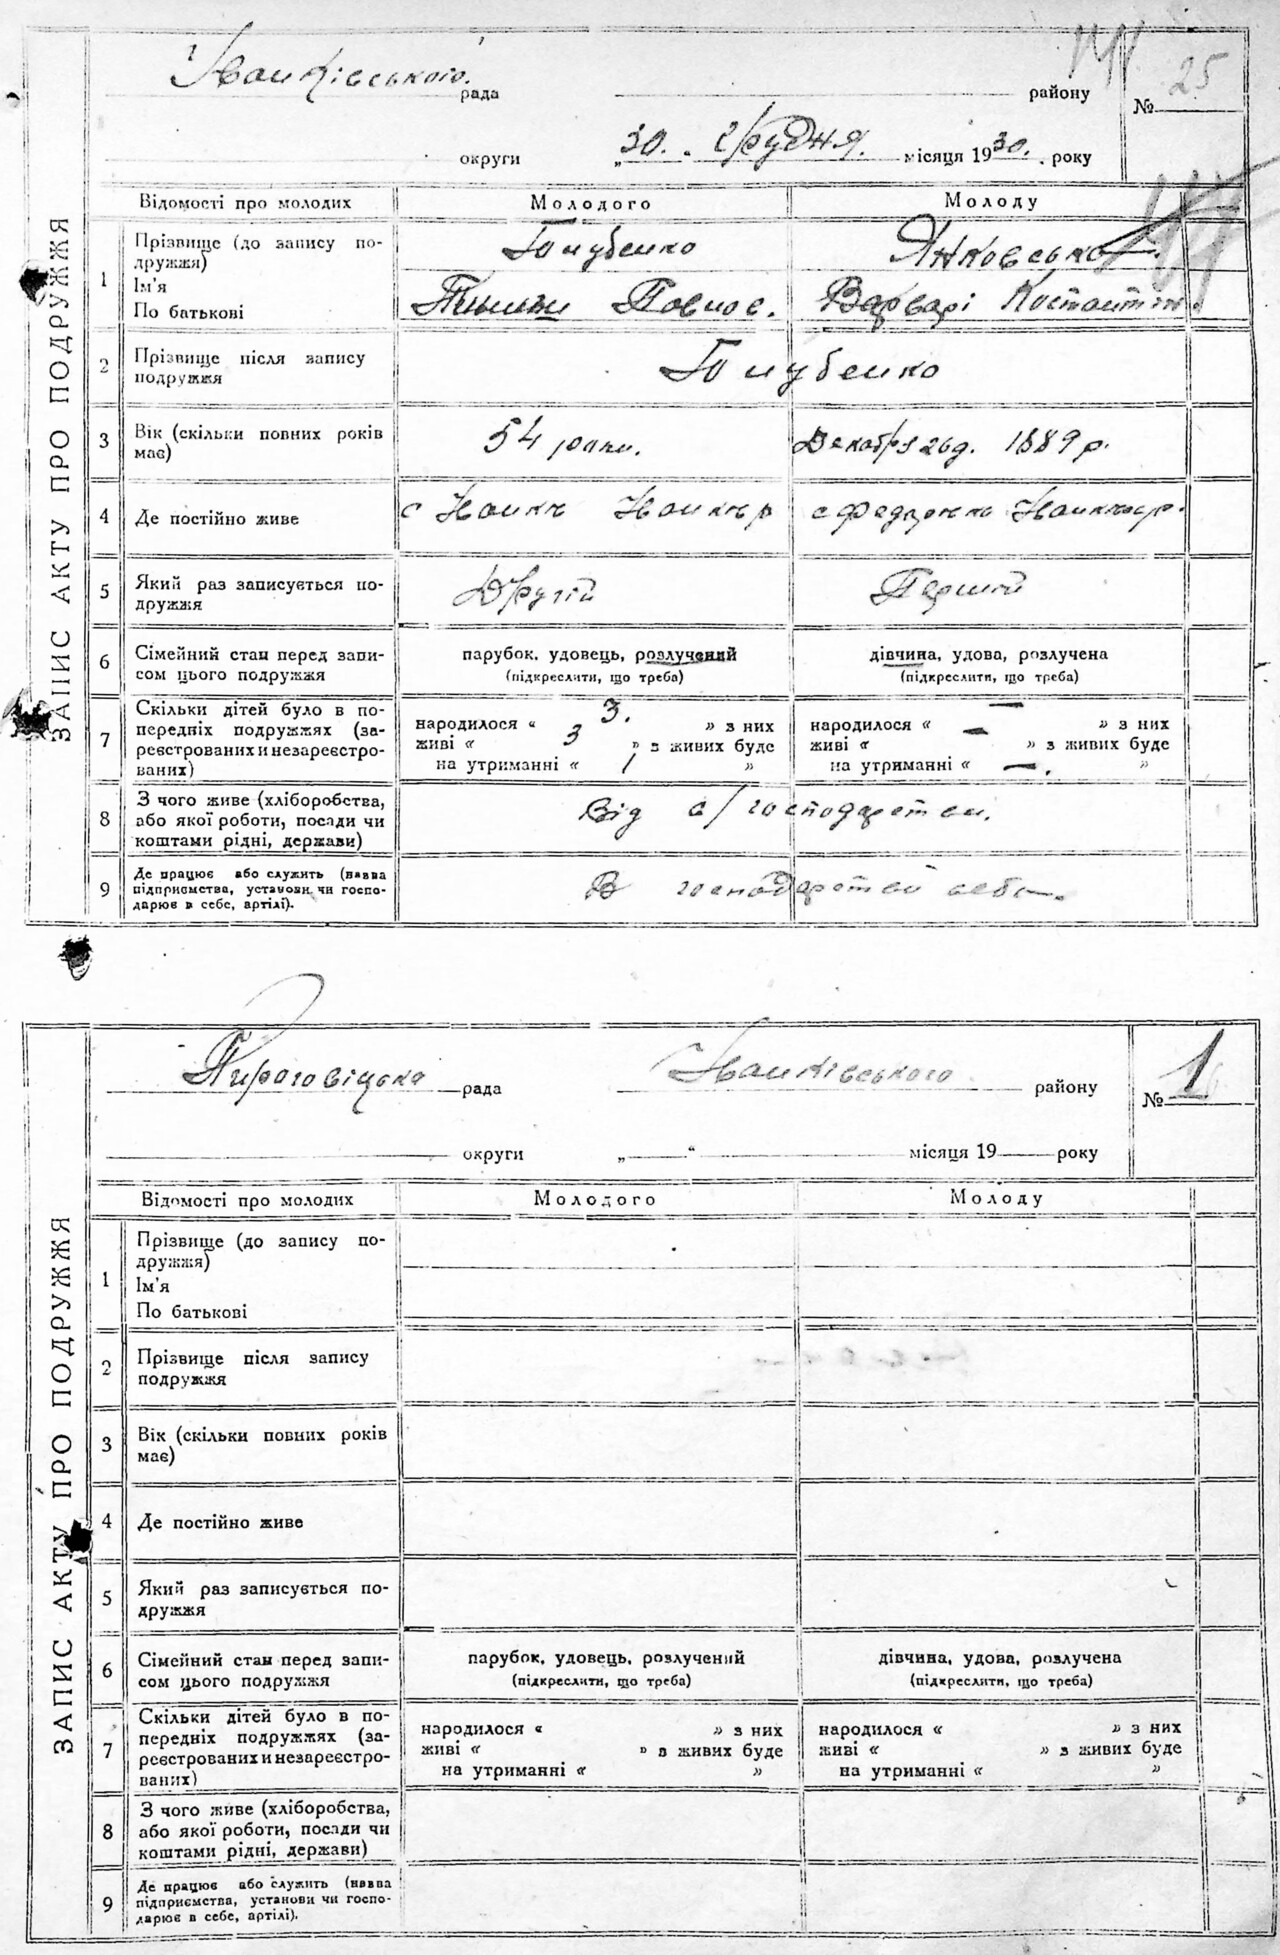 Іванківського
рада району № 25
округи „30. грудня. місяця 1930. року
ЗАПИС АКТУ ПРО ПОДРУЖЖЯ
Відомості про молодих Молодого Молоду
1 Прізвище (до запису по- Голубенко Янковська
дружжя)
Ім'я
По батькові Варварі
2 Прізвище після запису Голубенко
подружжя
3 Вік (скільки повних років 54 роки. Декабря 26 д. 1889 р.
має)
4 Де постійно живе с с
5 Який раз записується по- Другій Першій
дружжя
6 Сімейний стан перед запи- парубок, удовець, розлучений дівчина, удова, розлучена
сом цього подружжя (підкреслити, що треба) (підкреслити, що треба)
7 Скільки дітей було в по-
передніх подружжях (за- народилося « 3. » з них народилося « — » з них
реєстрованих и незареєстро- живі « 3 » з живих буде живі « — » з живих буде
ваних) на утриманні « 1 » на утриманні « —. »
8 З чого живе (хліборобства, Від с/господарства.
або якої роботи, посади чи
коштами рідні, держави)
9 Де працює або служить (назва В
підприємства, установи чи госпо-
дарює в себе, артілі).
Пироговіцька рада Іванківського району № 1
округи „ “ місяця 19 року
ЗАПИС АКТУ ПРО ПОДРУЖЖЯ
Відомості про молодих Молодого Молоду
1 Прізвище (до запису по-
дружжя)
Ім'я
По батькові
2 Прізвище після запису
подружжя
3 Вік (скільки повних років
має)
4 Де постійно живе
5 Який раз записується по-
дружжя
6 Сімейний стан перед запи- парубок, удовець, розлучений дівчина, удова, розлучена
сом цього подружжя (підкреслити, що треба) (підкреслити, що треба)
7 Скільки дітей було в по-
передніх подружжях (за- народилося « » з них народилося « » з них
реєстрованих и незареєстро- живі « » в живих буде живі « » з живих буде
ваних) на утриманні « » на утриманні « »
8 З чого живе (хліборобства,
або якої роботи, посади чи
коштами рідні, держави)
9 Де працює або служить (назва
підприємства, установи чи госпо-
дарює в себе, артілі).